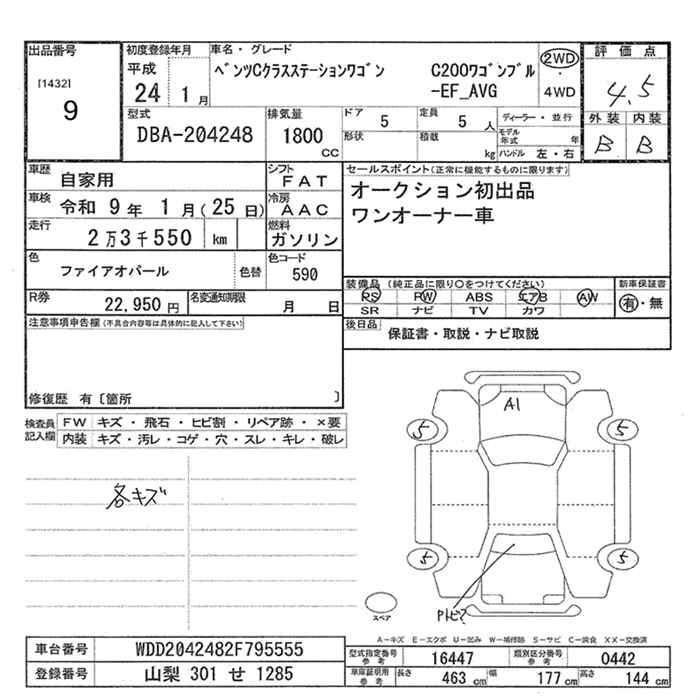 出品番号
[1432]
9
初度登録年月
平成
24 1 月
車名・グレード
ベンツCクラスステーションワゴン C200ワゴンブル
-EF_AVG
2WD
・
4WD
評価点
4.5
外装 内装
B B
型式
DBA-204248
排気量
1800
CC
ドア 5
定員 5 人
形状
積載 kg
ディーラー・並行
モデル年式 年
ハンドル 左・右
車歴 自家用
シフト
FAT
車検 令和 9 年 1 月(25 日)
冷房
AAC
走行 2万3千550 km
燃料
ガソリン
色 ファイアオパール 色替
色コード
590
R券 22,950 円
名変通知期限 月 日
セールスポイント(正常に機能するものに限ります)
オークション初出品
ワンオーナー車
装備品(純正品に限り○をつけてください)
PS PW ABS エアB AW
SR ナビ TV カワ
新車保証書
有・無
後日品 保証書・取説・ナビ取説
注意事項申告欄(不具合内容等は具体的に記入して下さい)
修復歴 有〔箇所 〕
検査員
記入欄
FW キズ・飛石・ヒビ割・リペア跡・×要
内装 キズ・汚レ・コゲ・穴・スレ・キレ・破レ
各キズ
A1
5 5
5 5
スペア
A-キズ E-エクボ U-凹み W-補修跡 S-サビ C-腐食 XX-交換済
車台番号 WDD2042482F795555
登録番号 山梨 301 せ 1285
型式指定番号
参考
16447
類別区分番号
参考
0442
車庫証明用
参考
長さ 463 cm 幅 177 cm 高さ 144 cm